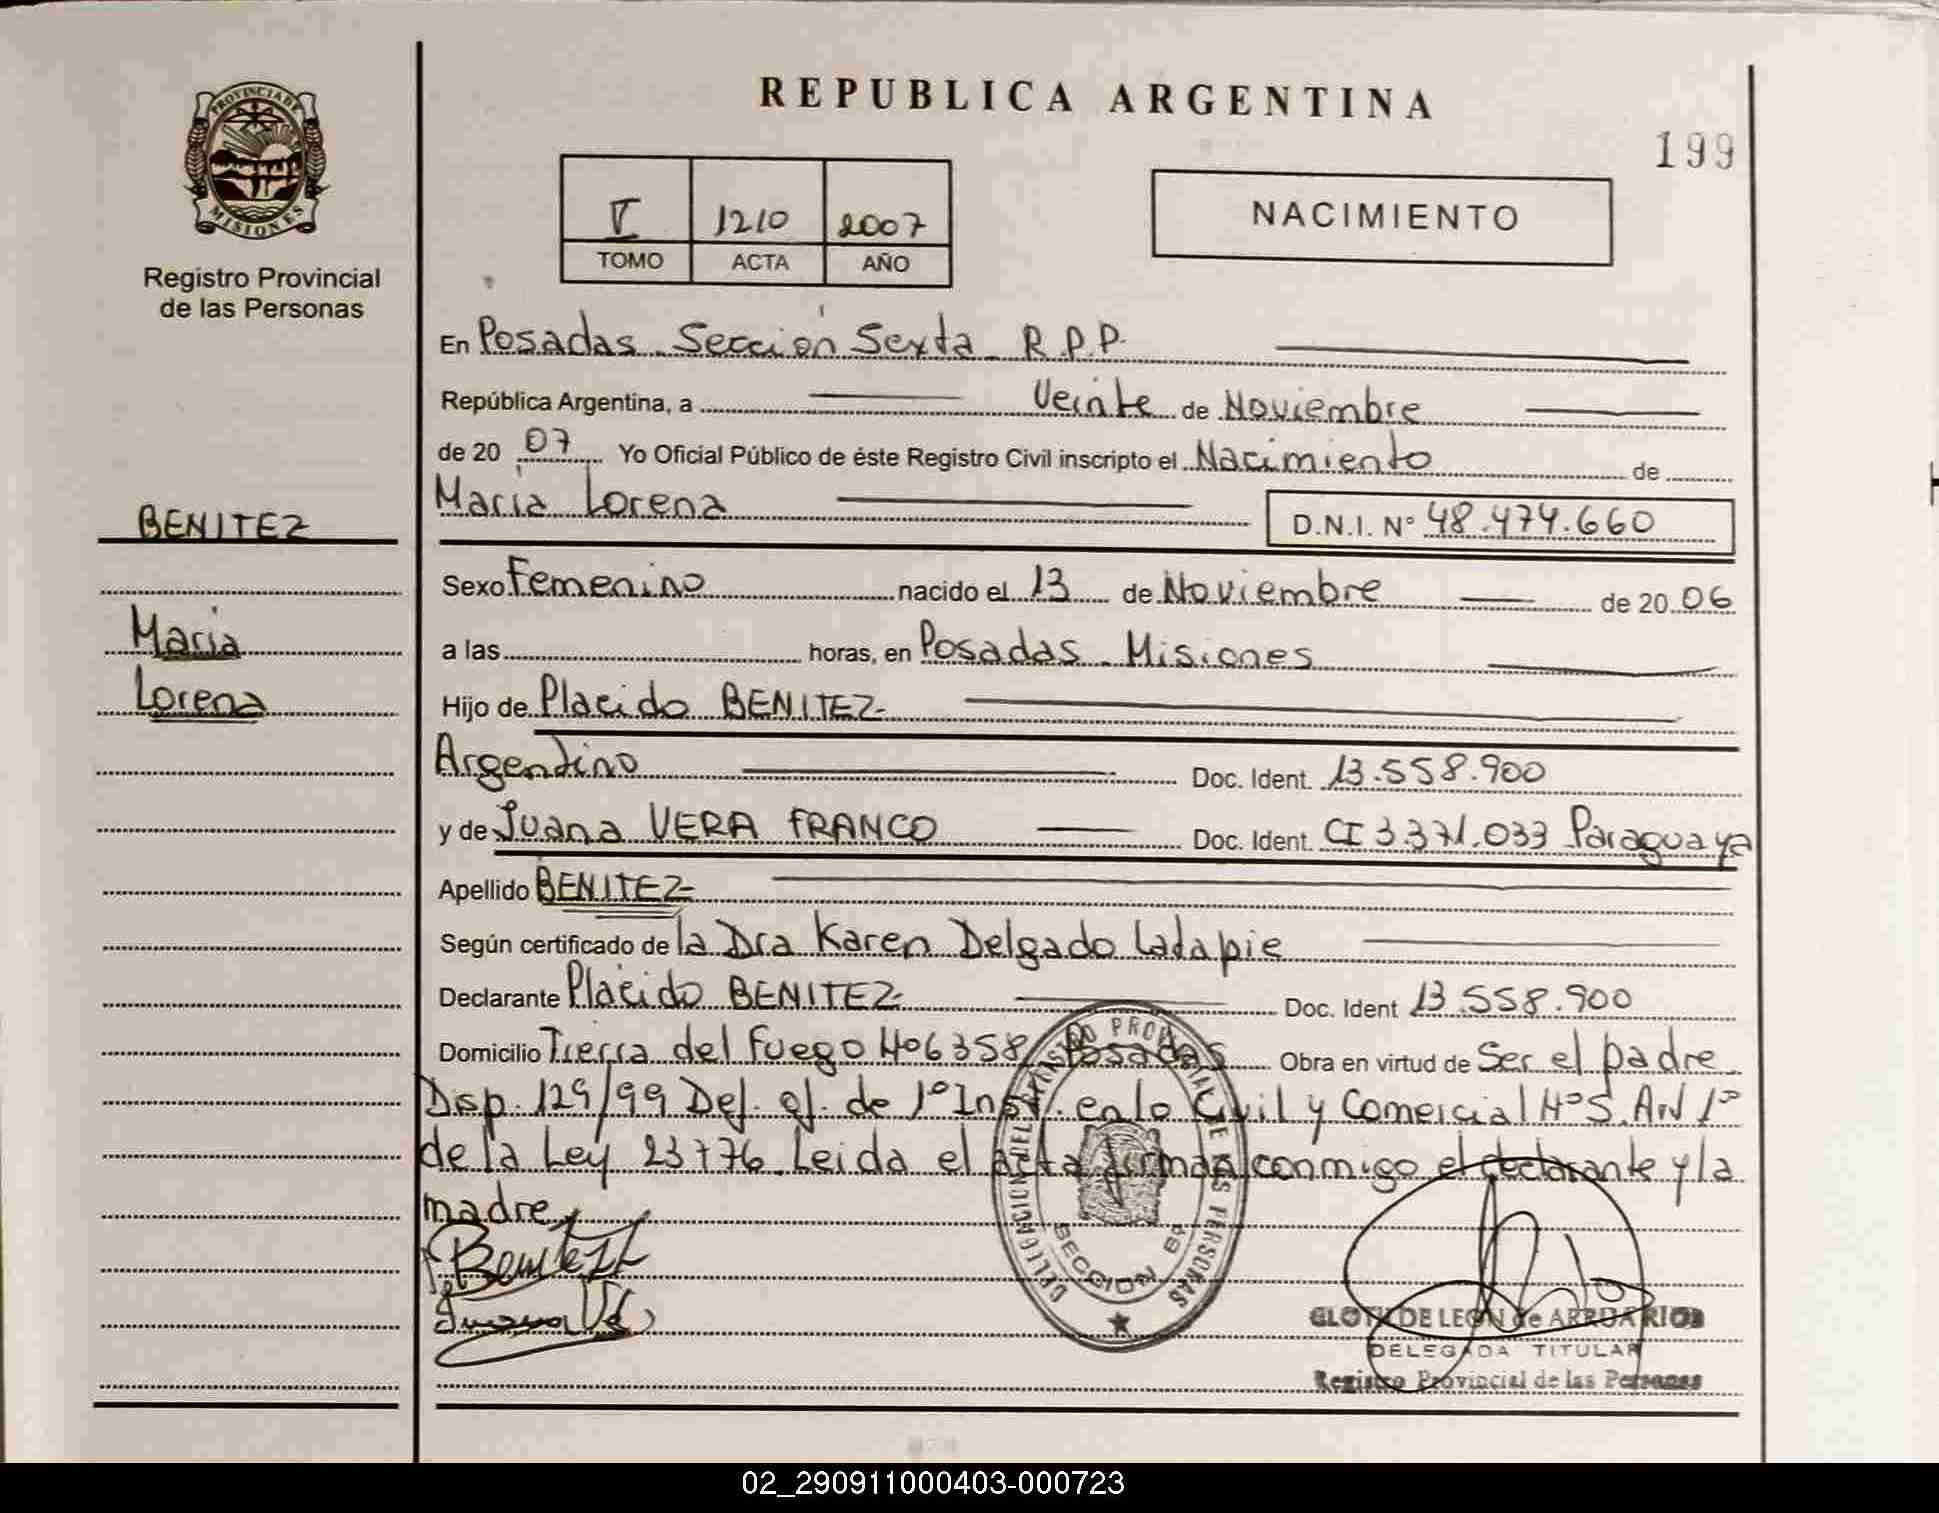 REPUBLICA ARGENTINA
199
PROVINCIA DE
MISIONES
Registro Provincial
de las Personas
V 1210 2007
TOMO ACTA AÑO
NACIMIENTO
En Posadas Sección Sexta R.P.P.
República Argentina, a Veinte de Noviembre
de 20 07 Yo Oficial Público de éste Registro Civil inscripto el Nacimiento de
Maria Lorena D.N.I. N° 48.474.660
BENITEZ
Maria
Lorena
Sexo Femenino nacido el 13 de Noviembre de 20 06
a las horas, en Posadas Misiones
Hijo de Placido BENITEZ
Argentino Doc. Ident. 13.558.900
y de Juana VERA FRANCO Doc. Ident. CI 3.371.033 Paraguaya
Apellido BENITEZ
Según certificado de la Dra Karen Delgado Ladapie
Declarante Placido BENITEZ Doc. Ident 13.558.900
Domicilio Tierra del Fuego N° 6358 Posadas Obra en virtud de Ser el padre
Disp. 129/99 Def. of. de 1° Inst. en lo Civil y Comercial N° 5. Art 1°
de la Ley 23776. Leida el acta firman conmigo el declarante y la
madre
Benitez
DELEGACION DEL REGISTRO PROVINCIAL DE LAS PERSONAS
SECCION 6ª
DE LEON de
DELEGADA TITULAR
Registro Provincial de las Personas
02_290911000403-000723